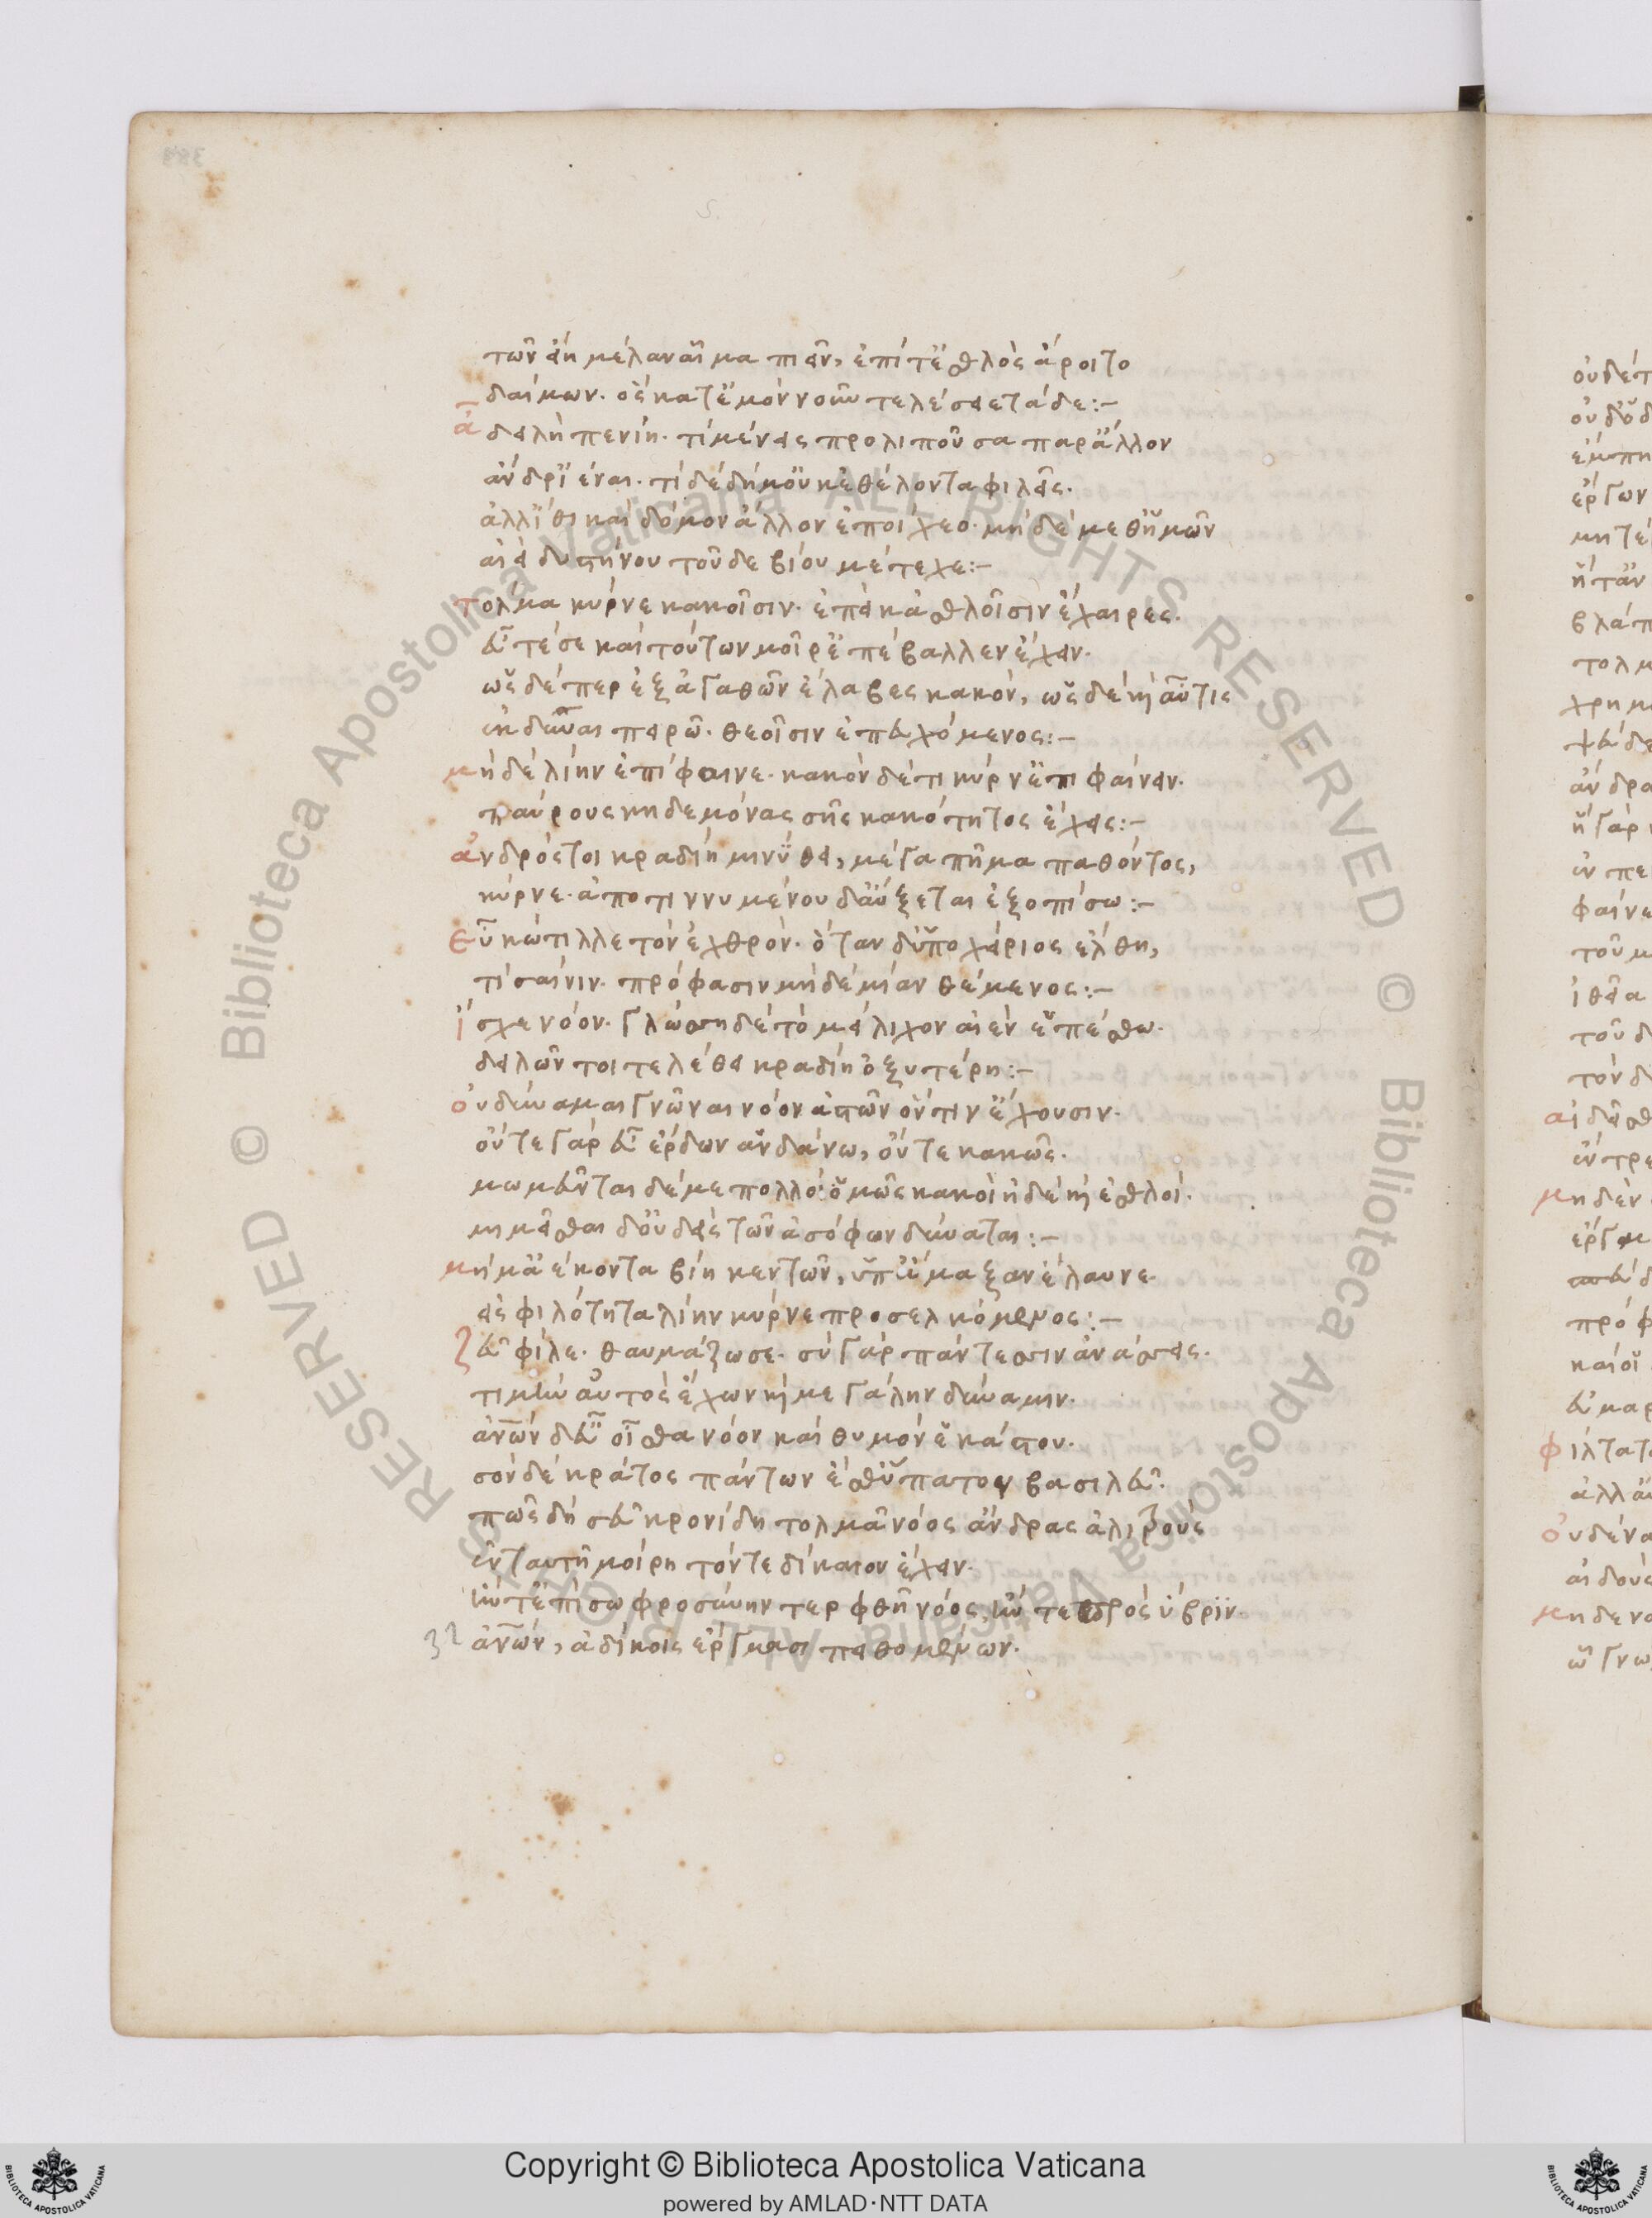 τῶν εἴη μέλαν αἷμα πιεῖν, ἐπί τ' ἐσθλὸς ἄροιτο
δαίμων· ὃς κατ' ἐμὸν νοῦν τελέσειε τάδε:–
ἆ δειλὴ πενίη· τί μένεις προλιποῦσα παρ' ἄλλον
ἄνδρ' ἰέναι· τί δὲ δή μ' οὐκ ἐθέλοντα φιλεῖς·
ἀλλ' ἴθι καὶ δόμον ἄλλον ἐποίχεο· μηδὲ μεθ' ἡμῶν
αἰεὶ δυστήνου τοῦδε βίου μέτεχε:–
τόλμα κύρνε κακοῖσιν· ἐπεὶ κἀσθλοῖσιν ἔχαιρες·
εὖτέ σε καὶ τούτων μοῖρ' ἐπέβαλλεν ἔχειν·
ὡς δέ περ ἐξ ἀγαθῶν ἔλαβες κακόν, ὣς δὲ καὶ αὖτις
ἐκδῦναι πειρῶ· θεοῖσιν ἐπευχόμενος:–
μηδὲ λίην ἐπίφαινε· κακὸν δέ τι κύρν' ἐπιφαίνειν·
παύρους κηδεμόνας σῆς κακότητος ἔχεις:–
ἀνδρός τοι κραδίη μινύθει, μέγα πῆμα παθόντος,
κύρνε· ἀποτιννυμένου δ' αὔξεται ἐξοπίσω:–
εὖ κώτιλλε τὸν ἐχθρόν· ὅταν δ' ὑποχείριος ἔλθη,
τίσαί νιν· πρόφασιν μηδεμίαν θέμενος:–
ἴσχε νόον· γλώσση δὲ τὸ μείλιχον αἰὲν ἐπέσθω·
δειλῶν τοι τελέθει κραδίη ὀξυτέρη:–
οὐ δύναμαι γνῶναι νόον ἀστῶν ὅντιν' ἔχουσιν·
οὔτε γὰρ εὖ ἔρδων ἁνδάνω, οὔτε κακῶς·
μωμεῦνται δέ με πολλοί ὁμῶς κακοὶ ἠδὲ καὶ ἐσθλοί·
μιμεῖσθαι δ' οὐδεὶς τῶν ἀσόφων δύναται:–
μή μ' ἀέκοντα βίη κεντῶν, ὑπ' ἄμαξαν ἔλαυνε·
εἰς φιλότητα λίην κύρνε προσελκόμενος:–
ζεῦ φίλε· θαυμάζω σε· σὺ γὰρ πάντεσσιν ἀνάσσεις·
τιμὴν αὐτὸς ἔχων καὶ μεγάλην δύναμιν·
ἀνων δ' εὖ οἶσθα νόον καὶ θυμὸν ἑκάστου·
σὸν δὲ κράτος πάντων ἔσθ' ὕπατον βασιλεῦ·
πῶς δή σευ κρονίδη τολμᾶ νόος ἄνδρας ἀλιτροὺς
ἐν ταυτῆ μοίρη τόν τε δίκαιον ἔχειν·
ἤν τ' ἐπὶ σωφροσύνην τερφθῆ νόος, ἤν τε πρὸς ὕβριν·
32 ἀνων, ἀδίκοις ἔργμασι πειθομένων·
Copyright © Biblioteca Apostolica Vaticana
powered by AMLAD·NTT DATA